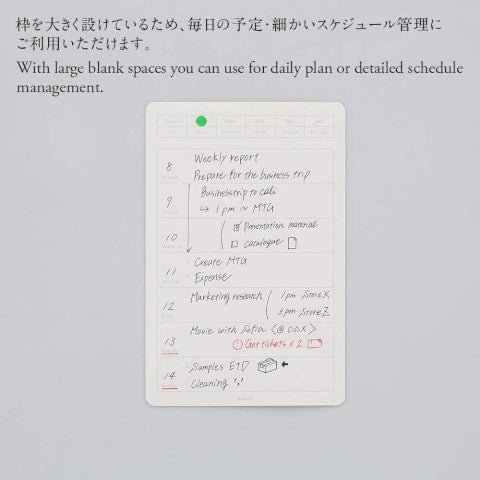 枠を大きく設けているため、毎日の予定・細かいスケジュール管理に
ご利用いただけます。
With large blank spaces you can use for daily plan or detailed schedule
management.
8
・Weekly report
・Prepare for the business trip
9
・Business trip to cali
↳ 1pm ~ MTG
10
☑ Presentation material
☐ catalogue
11
・Create MTG
・Expense
12
Marketing research
1pm Store X
3pm Store Z
13
Movie with Sofia <@ O△X>
Get tickets × 2
14
・Samples ETD
・Cleaning